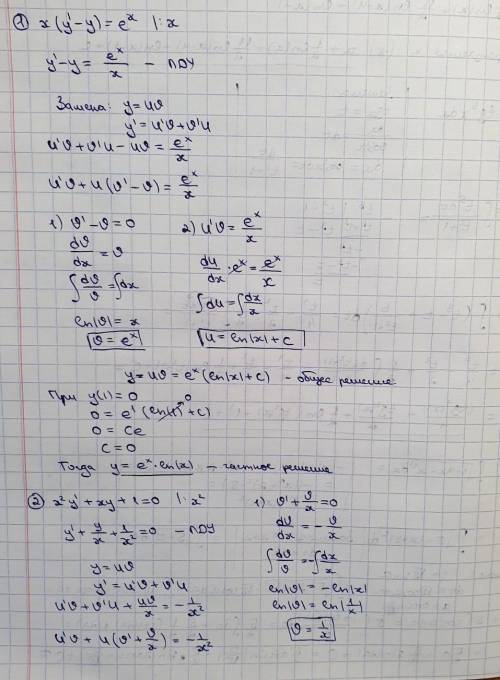 ① x(y'-y)=eˣ |:x
y'-y = eˣ/x - ЛДУ
Замена: y=uϑ
y'=u'ϑ+ϑ'u
u'ϑ+ϑ'u-uϑ=eˣ/x
u'ϑ+u(ϑ'-ϑ)=eˣ/x
1) ϑ'-ϑ=0
dϑ/dx=ϑ
∫dϑ/ϑ=∫dx
ln|ϑ|=x
ϑ=eˣ
2) u'ϑ=eˣ/x
du/dx·eˣ=eˣ/x
∫du=∫dx/x
u=ln|x|+C
y=uϑ=eˣ(ln|x|+C) - общее решение
При y(1)=0
0=e¹(ln|1|+C) 0
0=Ce
C=0
Тогда y=eˣ·ln|x| - частное решение
② x²y'+xy+1=0 |:x²
y'+y/x+1/x²=0 - ЛДУ
y=uϑ
y'=u'ϑ+ϑ'u
u'ϑ+ϑ'u+uϑ/x=-1/x²
u'ϑ+u(ϑ'+ϑ/x)=-1/x²
1) ϑ'+ϑ/x=0
dϑ/dx=-ϑ/x
∫dϑ/ϑ=-∫dx/x
ln|ϑ|=-ln|x|
ln|ϑ|=ln|1/x|
ϑ=1/x